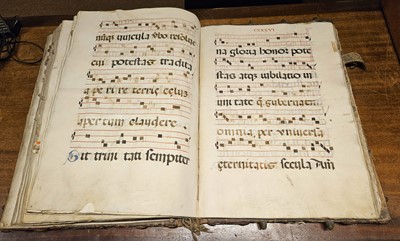 niq̃ vincula v̾bo resolve
cui potestas tradita
aperire terris celum
apertum claudere
Sit trinitati sempiter
cxxxvi
na gloria honor pote
stas atq̃ iubilatio in
unitate q̃ gubernat
omnia per universa
eternitatis secula Am̃